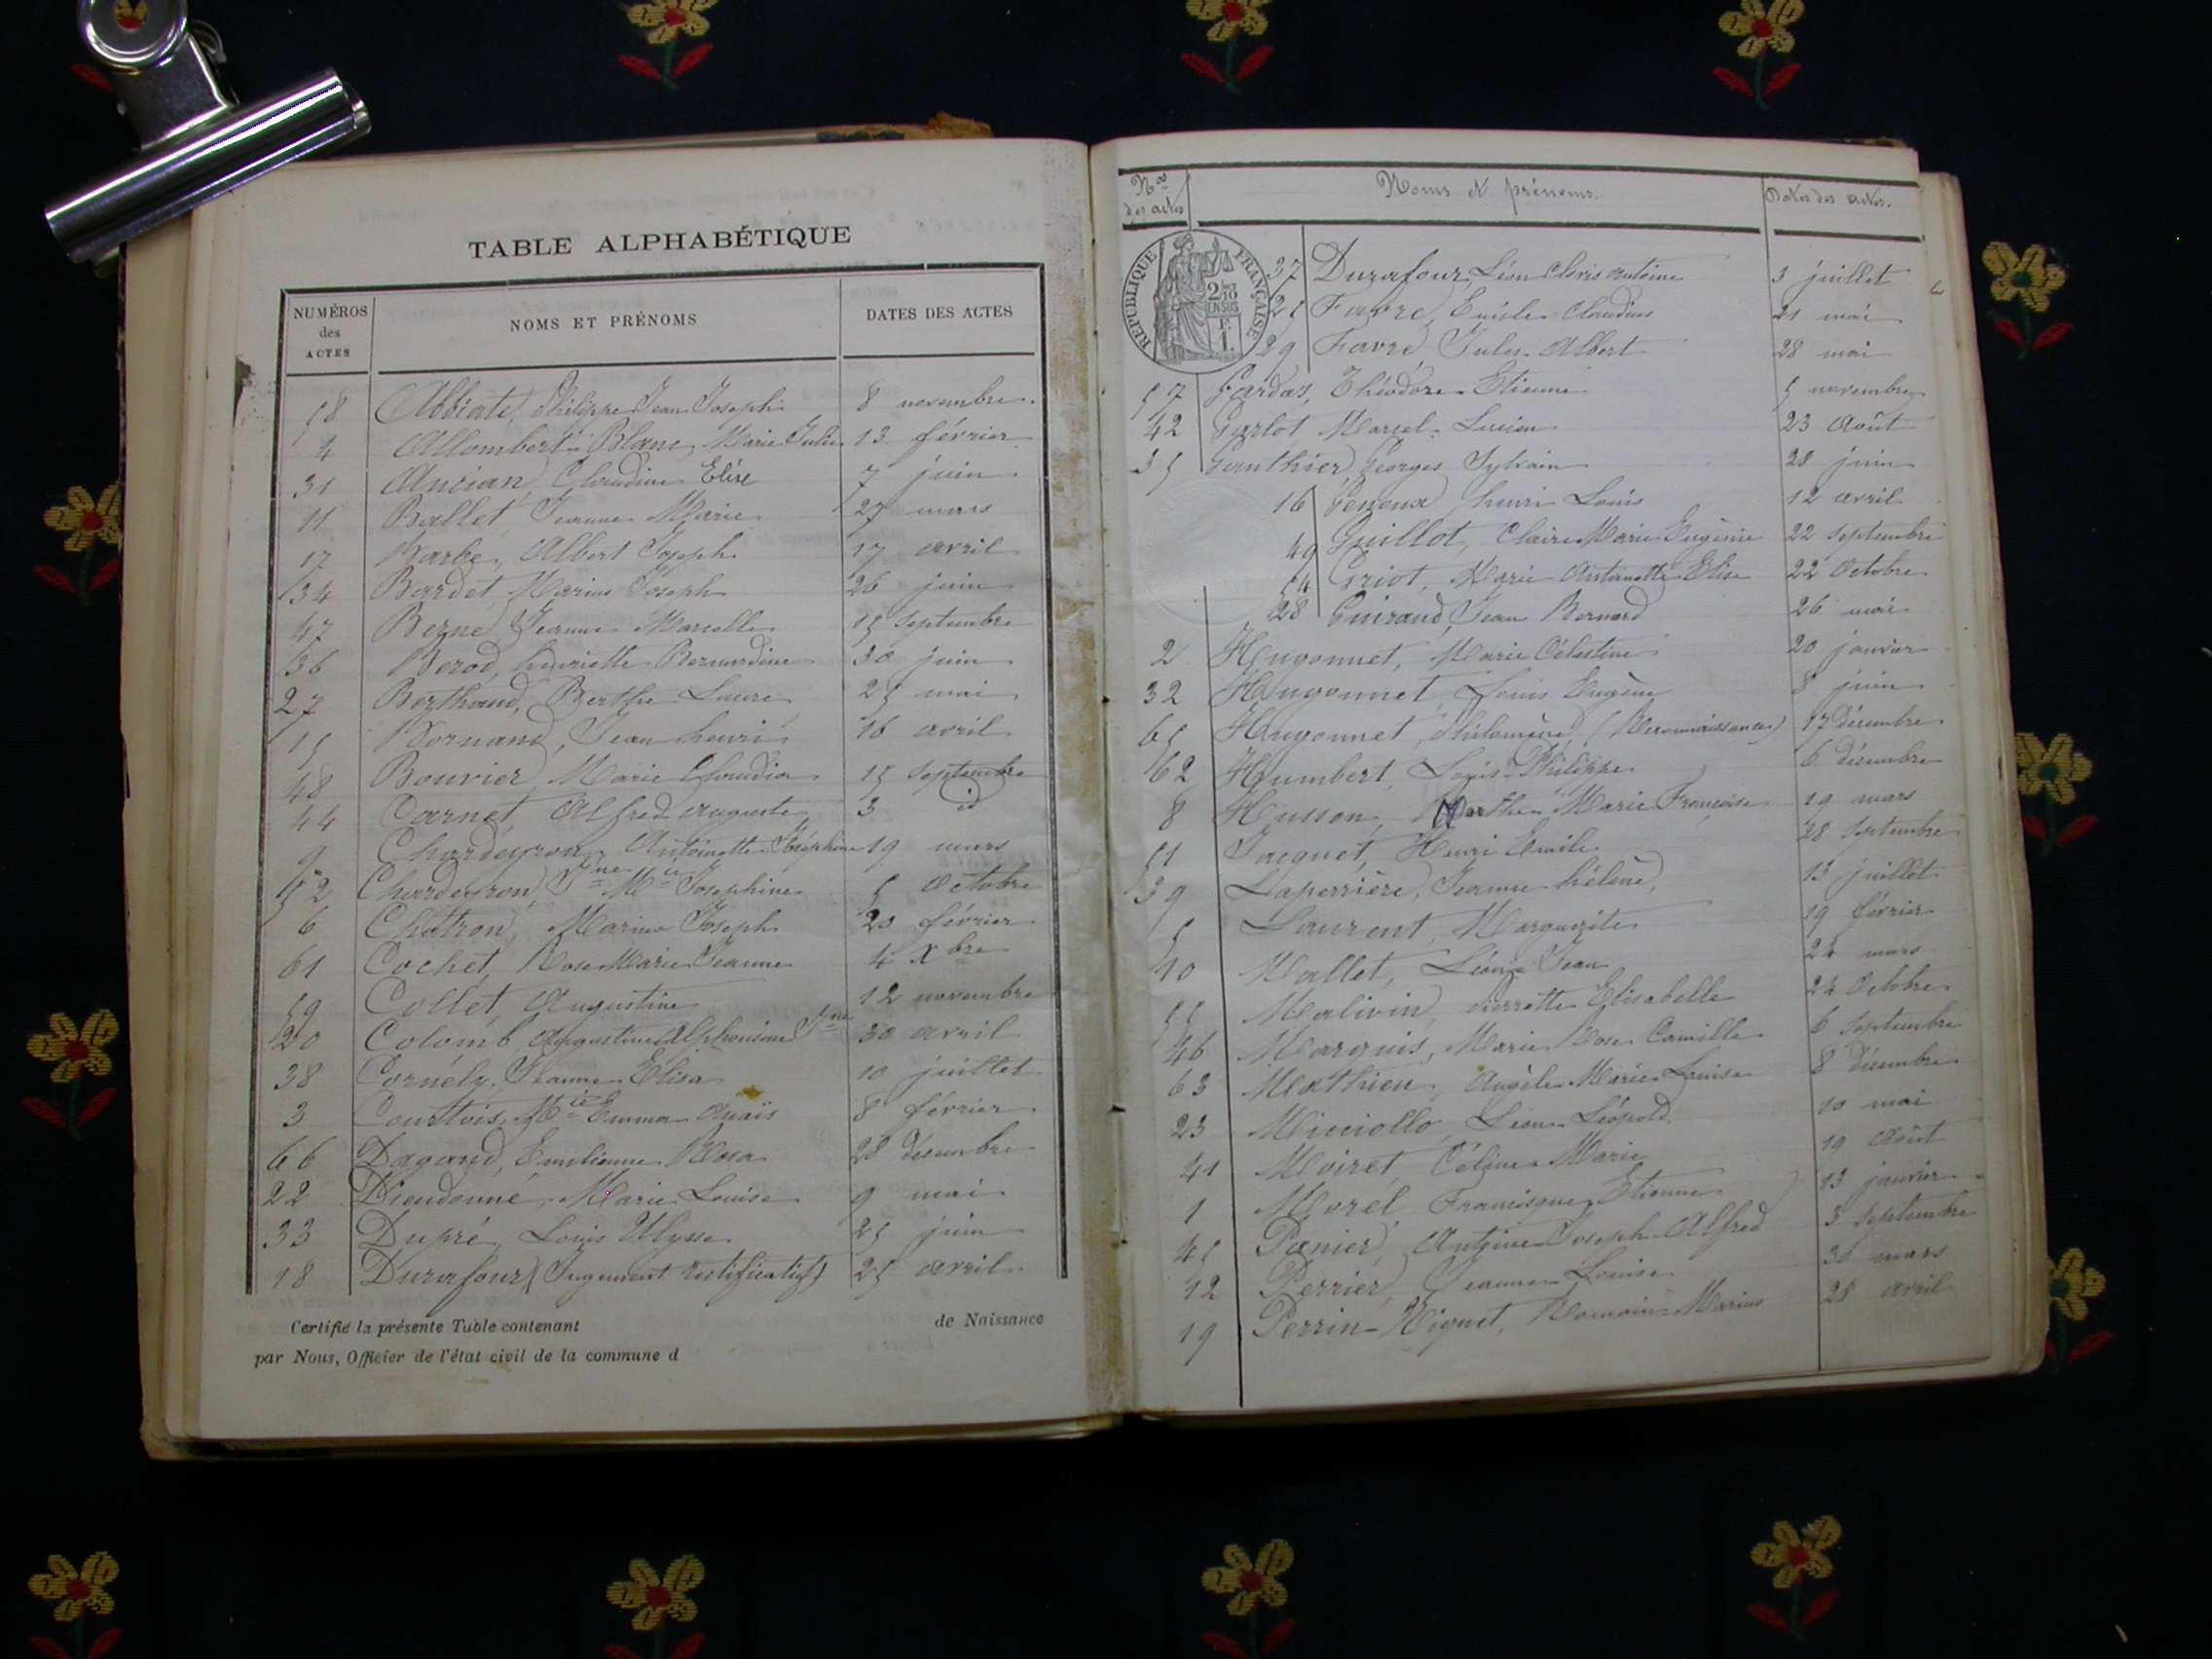 TABLE ALPHABÉTIQUE
NUMÉROS des ACTES
NOMS ET PRÉNOMS
DATES DES ACTES
58 Abbiate, Philippe Jean Joseph 8 novembre
4 Allombert-Blanc, Marie Julie 13 février
31 Ancian, Claudine Elise 7 juin
11 Ballet, Jeanne Marie 27 mars
17 Barbe, Albert Joseph 17 avril
34 Bardet, Marius Joseph 26 juin
47 Berne, Jeanne Marcelle 15 septembre
36 Berod, henriette Bernardine 30 juin
27 Berthand, Berthe Laure 25 mai
15 Bornand, Jean henri 16 avril
48 Bouvier, Marie Claudia 15 septembre
44 Carnet, Alfred auguste 3 id
9 Chardeyron, Antoinette Joséphine 19 mars
52 Chardeyron, Jne Mie Josephine 5 octobre
6 Chatron, Marius Joseph 20 février
61 Cochet, Rose Marie Jeanne 4 Xbre
59 Collet, Augustine 12 novembre
20 Colomb, Augustine Alphonsine Jne 30 avril
38 Cornély, Jeanne Elisa 10 juillet
3 Courtois, Mie Emma Anaïs 8 février
66 Dagand, Emilienne Rosa 28 décembre
22 Dieudonné, Marie Louise 9 mai
33 Dupré, Louis Ulysse 25 juin
18 Durafour (Jugement rectificatif) 25 avril
Certifié la présente Table contenant de Naissance
par Nous, Officier de l'état civil de la commune d
Nos des actes
Noms et prénoms.
Dates des actes.
RÉPUBLIQUE FRANÇAISE
2/10 EN SUS
37 Durafour, Léon Clovis antoine 3 juillet
25 Favre, Emile Claudius 21 mai
29 Favre, Jules Albert 28 mai
57 Gardas, Théodore Etienne 5 novembre
42 Garlot Marcel Lucien 23 Août
35 Gauthier, Georges Sylvain 28 juin
16 Genoux, henri Louis 12 avril
49 Guillot, Claire Marie Eugènie 22 septembre
54 Griot, Marie Antoinette Elise 22 Octobre
28 Guiraud, Jean Bernard 26 mai
2 Hugonnet, Marie Célestine 20 janvier
32 Hugonnet, Louis Eugène 8 juin
65 Hugonnet, Philomène (Reconnaissance) 17 décembre
62 Humbert, Louis Philippe 6 décembre
8 Husson, Marthe Marie Françoise 19 mars
51 Jacquet, Henri Emile 28 septembre
39 Laperrière, Jeanne hélène, 13 juillet
5 Laurent, Marguerite 19 février
10 Mallet, Léon Jean 24 mars
55 Malivin, Pierrette Elisabelle 24 Octobre
46 Marquis, Marie Rose Camille 6 septembre
63 Mathieu, Angèle Marie Louise 8 décembre
23 Micciollo, Léon Léopold 10 mai
41 Moiret, Céline Marie 19 Août
1 Morel Francisque Etienne 13 janvier
45 Panier, Antoine Joseph Alfred 3 septembre
12 Perrier, Jeanne Louise 30 mars
19 Perrin-Niquet, Romain Marius 28 avril